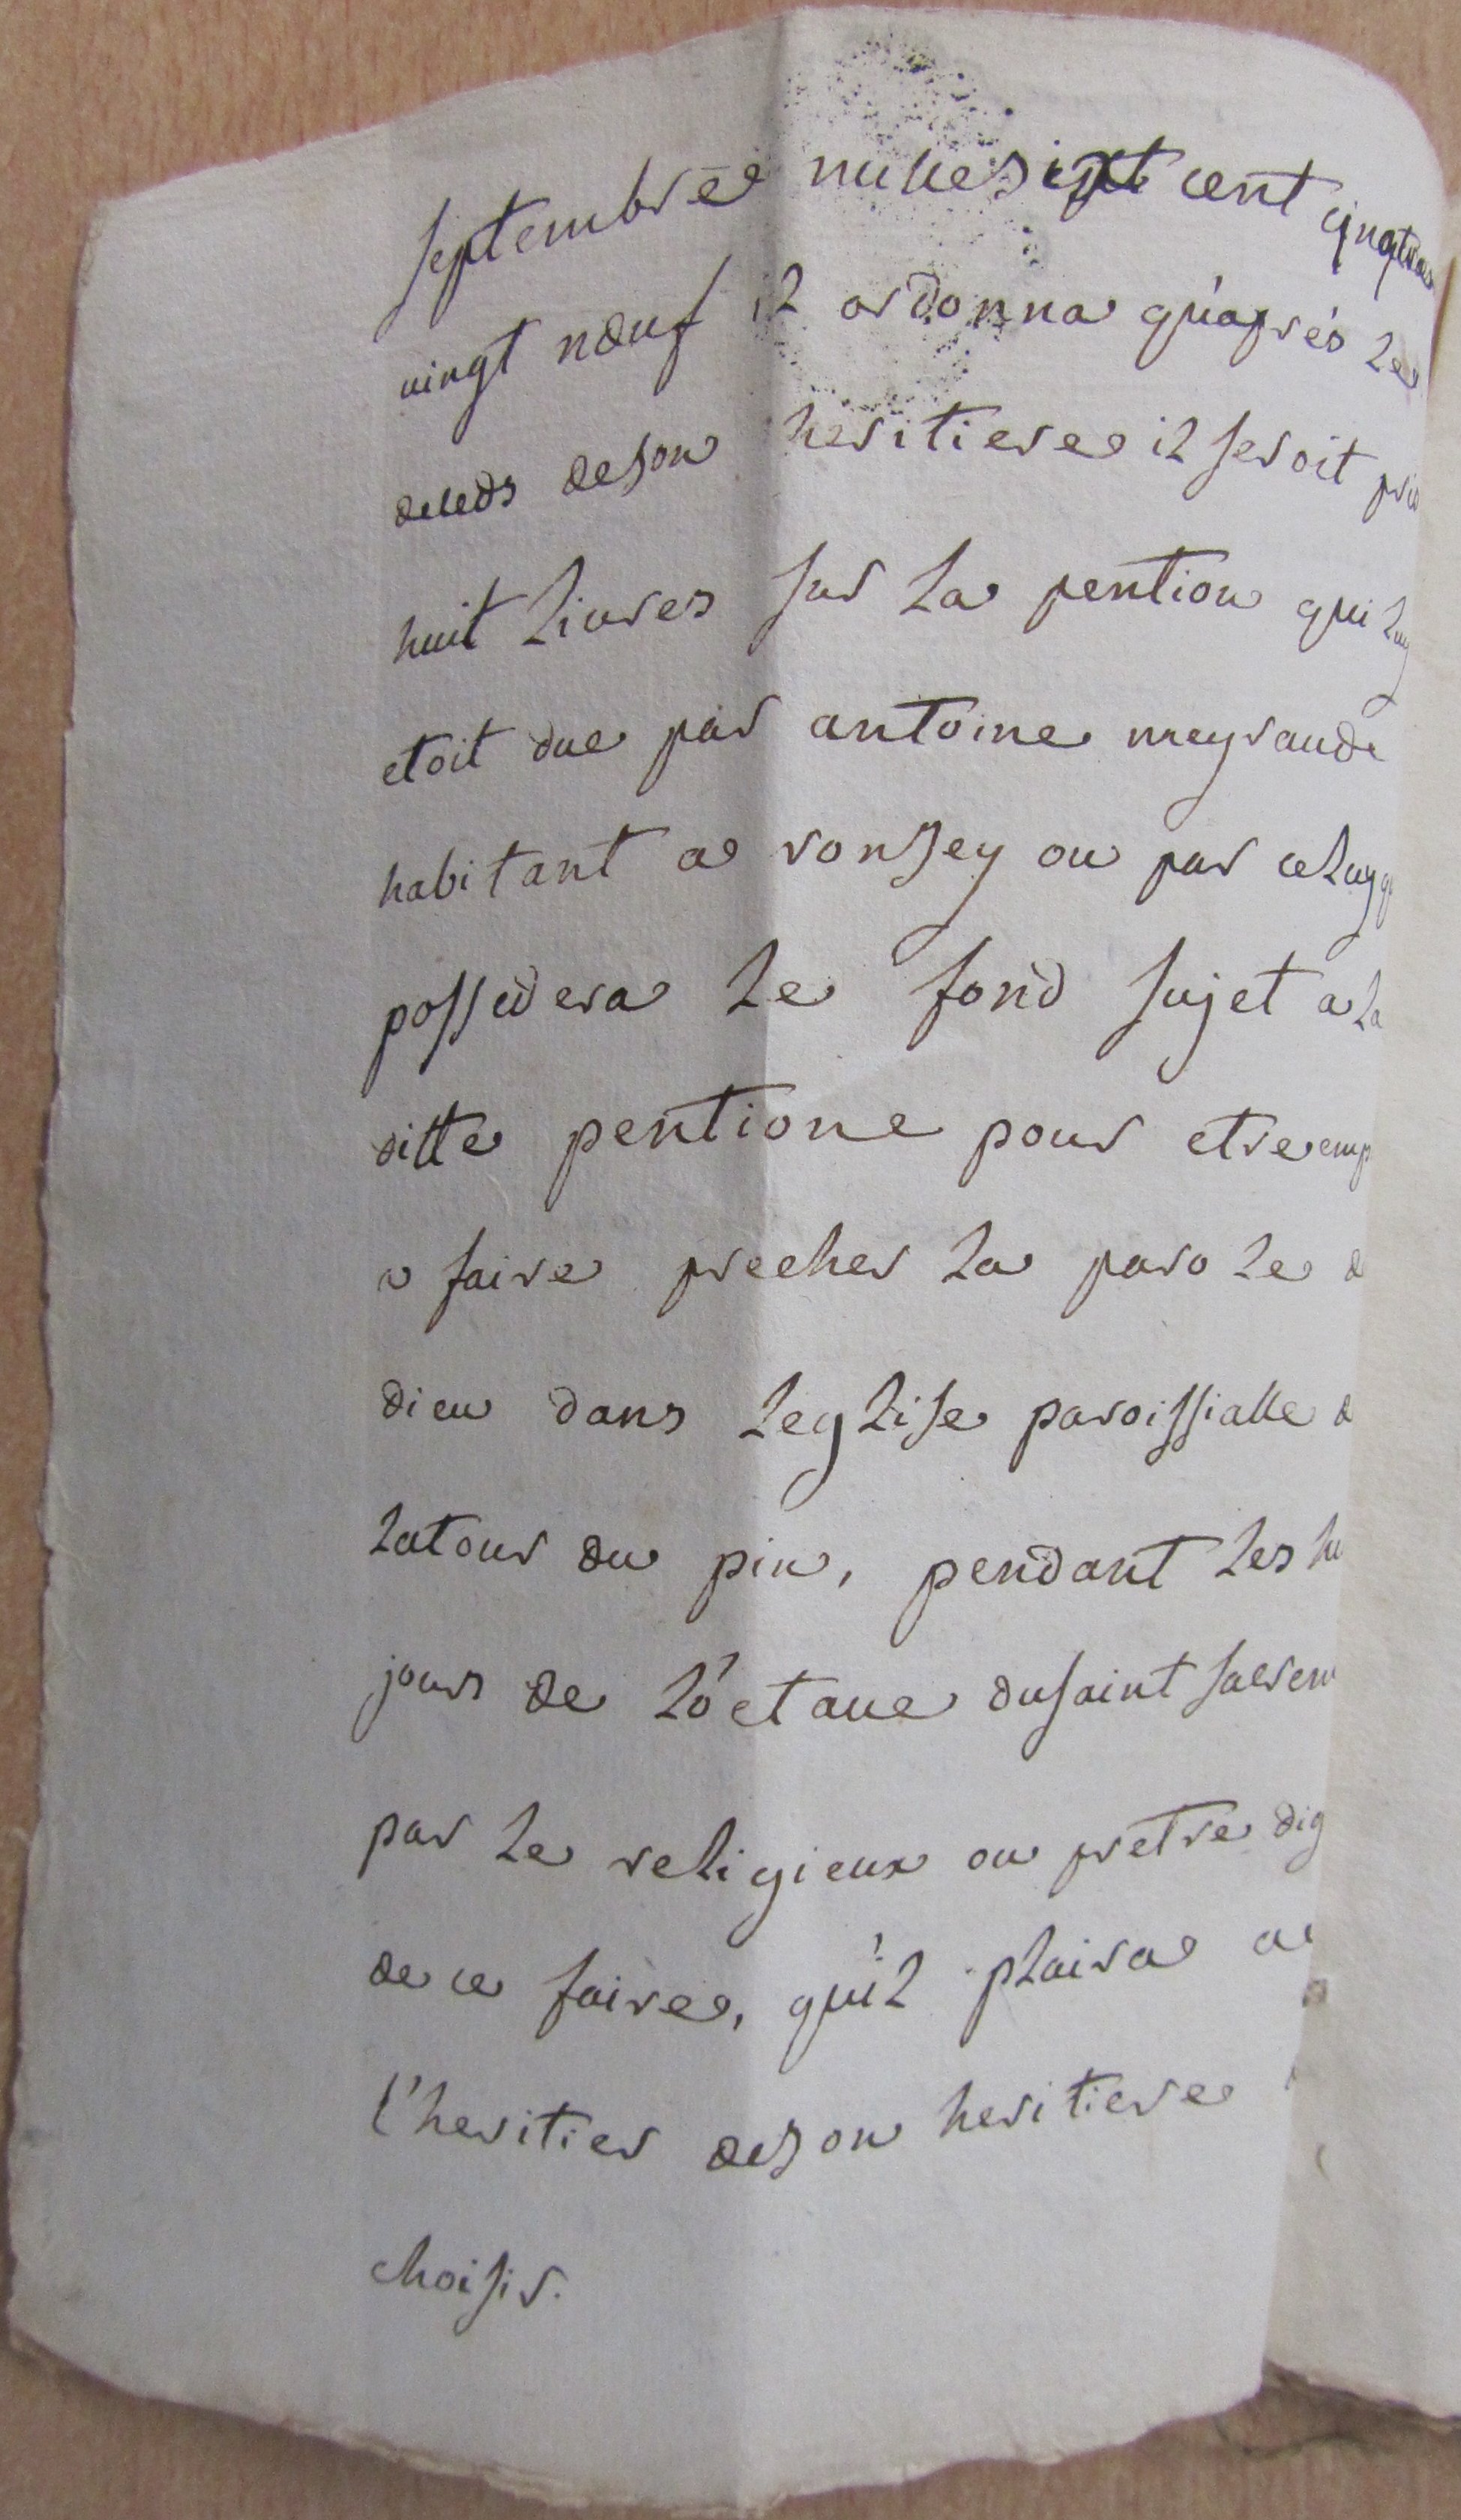 septembre mille sixt cent
vingt nœuf il ordonna qu'aprés le
deceds de son heritiere il seroit pris
huit livres sur la pention qui luy
etoit due par antoine meyraude
habitant a ronsey ou par celuy q
possedera le fond sujet a la
ditte pentione pour etre emp
a faire precher la parole d
dieu dans leglise paroissialle d
latour du pin, pendant les hu
jours de l'óctave du saint sacrem
par le religieux ou pretre dig
de ce faire, qu'il plaira a
l'heritier de son heritiere
choisir.